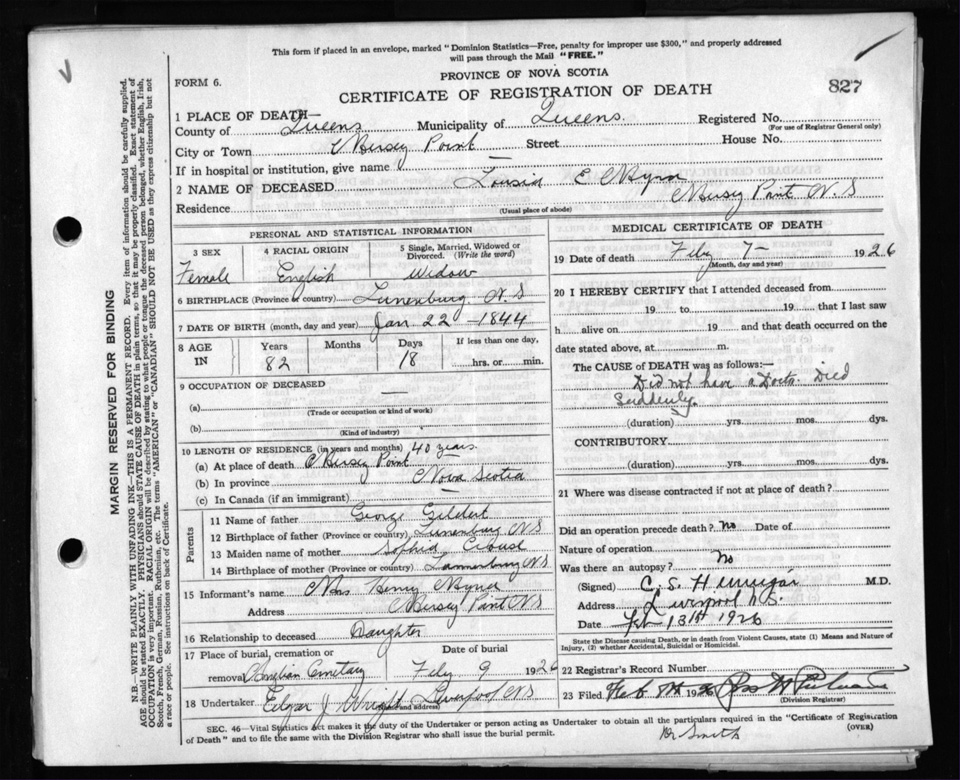 This form if placed in an envelope, marked "Dominion Statistics—Free, penalty for improper use $300," and properly addressed
will pass through the Mail "FREE."
PROVINCE OF NOVA SCOTIA
FORM 6.
CERTIFICATE OF REGISTRATION OF DEATH
827
1 PLACE OF DEATH—
County of Queens Municipality of Queens. Registered No.
(For use of Registrar General only)
City or Town Mersey Point — Street House No.
If in hospital or institution, give name
2 NAME OF DECEASED E
Residence Mersey Point N.S
(Usual place of abode)
PERSONAL AND STATISTICAL INFORMATION
3 SEX 4 RACIAL ORIGIN 5 Single, Married, Widowed or Divorced. (Write the word)
Female English Widow
6 BIRTHPLACE (Province or country) Lunenburg N.S
7 DATE OF BIRTH (month, day and year) Jan 22 - 1844
8 AGE IN Years Months Days If less than one day,
82 18 hrs. or min.
9 OCCUPATION OF DECEASED
(a) —
(Trade or occupation or kind of work)
(b)
(Kind of industry)
10 LENGTH OF RESIDENCE (in years and months) 40 years
(a) At place of death Mersey Point
(b) In province Nova Scotia
(c) In Canada (if an immigrant) —
Parents
11 Name of father George
12 Birthplace of father (Province or country) Lunenburg NS
13 Maiden name of mother Sophia
14 Birthplace of mother (Province or country) NS
15 Informant's name Mrs Henry
Address Mersey Point NS
16 Relationship to deceased Daughter
17 Place of burial, cremation or removal Cemetary Date of burial Feby 9 1926
18 Undertaker Edgar J Wright Liverpool NS
and address)
MEDICAL CERTIFICATE OF DEATH
19 Date of death Feby 7 - 1926
(Month, day and year)
20 I HEREBY CERTIFY that I attended deceased from
19 to 19 that I last saw
h alive on 19 and that death occurred on the
date stated above, at m.
The CAUSE of DEATH was as follows:—
Did not have a Doctor. Died
Suddenly.
(duration) yrs. mos. dys.
CONTRIBUTORY
(duration) yrs. mos. dys.
21 Where was disease contracted if not at place of death?
Did an operation precede death? No Date of
Nature of operation
Was there an autopsy? No
(Signed) C. S. M.D.
Address Liverpool N.S.
Date 13th 1926
State the Disease causing Death, or in death from Violent Causes, state (1) Means and Nature of
Injury, (2) whether Accidental, Suicidal or Homicidal.
22 Registrar's Record Number
23 Filed Feb 1926
(Division Registrar)
SEC. 46—Vital Statistics Act makes it the duty of the Undertaker or person acting as Undertaker to obtain all the particulars required in the "Certificate of Registration
of Death" and to file the same with the Division Registrar who shall issue the burial permit.
(OVER)
Dr Smith
MARGIN RESERVED FOR BINDING
N.B.—WRITE PLAINLY WITH UNFADING INK—THIS IS A PERMANENT RECORD. Every item of information should be carefully supplied.
AGE should be stated EXACTLY. PHYSICIANS should STATE CAUSE OF DEATH in plain terms, so that it may be properly classified. Exact statement of
OCCUPATION is very important. RACIAL ORIGIN will be described by stating to what people or tongue the deceased person belonged, whether English, Irish,
Scotch, French, German, Russian, Ruthenian, etc. The terms "AMERICAN" or "CANADIAN" SHOULD NOT BE USED as they express citizenship but not
a race of people. See instructions on back of Certificate.